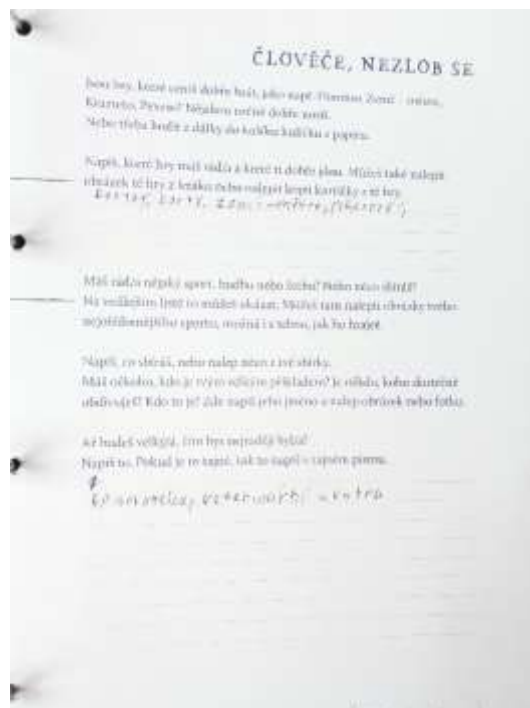 ČLOVĚČE, NEZLOB SE
Jsou hry, které umíš dobře hrát, jako např. Písmeno Země - město,
Kvarteto, Pexeso? Nějakou určitě dobře umíš.
Nebo třeba hodit z dálky do košíku kuličku z papíru.
Napiš, které hry máš rád/a a které ti dobře jdou. Můžeš také nalepit
obrázek té hry z letáku nebo nalepit kopii kartičky z té hry.
karty,
Máš rád/a nějaký sport, hudbu nebo knihu? Nebo něco sbíráš?
Na vedlejším listě to můžeš ukázat. Můžeš tam nalepit obrázky tvého
nejoblíbenějšího sportu, možná i s sebou, jak ho hraješ.
Napiš, co sbíráš, nebo nalep něco z tvé sbírky.
Máš někoho, kdo je tvým velkým příkladem? Je někdo, koho skutečně
obdivuješ? Kdo to je? Zde napiš jeho jméno a nalep obrázek nebo fotku.
Až budeš velký/á, čím bys nejraději byl/a?
Napiš to. Pokud je to tajné, tak to napiš v tajném písmu.